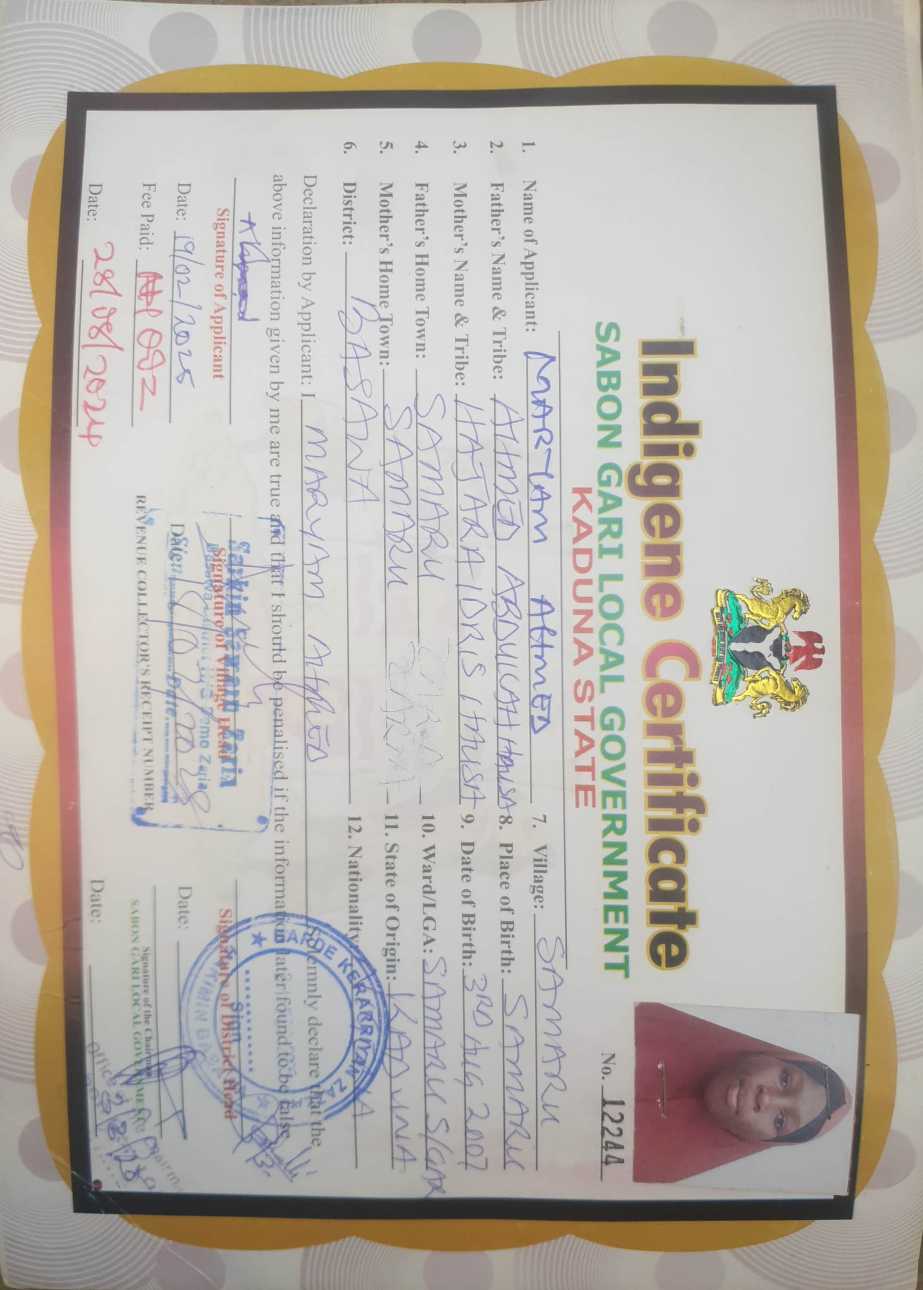 Indigene Certificate
SABON GARI LOCAL GOVERNMENT
KADUNA STATE
No. 12244
1. Name of Applicant: MARYAM AHMED
2. Father's Name & Tribe: AHMED ABDULLAH HAUSA
3. Mother's Name & Tribe: HAJARA IDRIS HAUSA
4. Father's Home Town: SAMARU
5. Mother's Home Town: SAMARU
6. District: BASAWA
7. Village: SAMARU
8. Place of Birth: SAMARU
9. Date of Birth: 3RD AUG 2007
10. Ward/LGA: SAMARU S/GAR
11. State of Origin: KADUNA
12. Nationality:
Declaration by Applicant: I MARYAM AHMED solemnly declare that the
above information given by me are true and that I should be penalised if the information later found to be false.
Signature of Applicant
Date: 19/02/2025
Fee Paid: 092
Date: 28/08/2024
Signature of Village Head
Date:
REVENUE COLLECTOR'S RECEIPT NUMBER
Signature of District Head
Date:
Signature of the Chairman
SABON GARI LOCAL GOVERNMENT
Date: